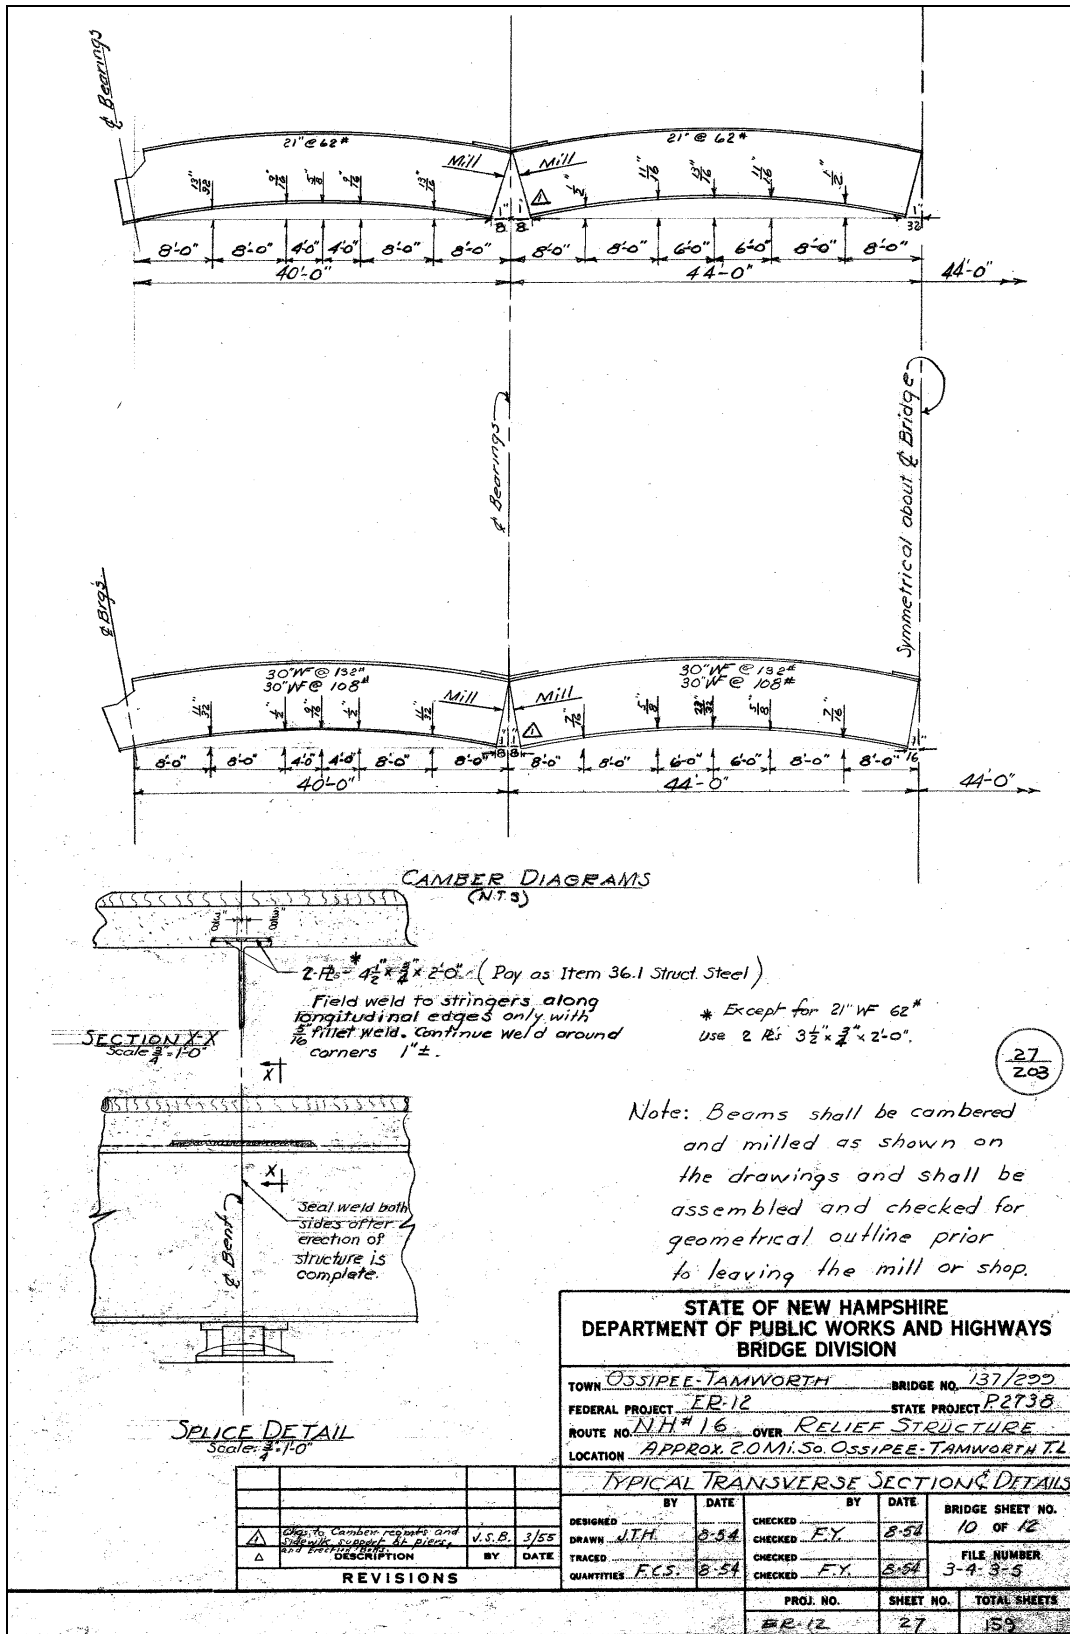 ℄ Bearings
21" @ 62#
21" @ 62#
Mill
Mill
13/32 9/16 5/8" 9/16 13/16
1/2" 11/16 13/16 11/16" 1/2"
1"/8 1"/8
1"/32
8'-0" 8'-0" 4'-0" 4'-0" 8'-0" 8'-0" 8'-0" 8'-0" 6'-0" 6'-0" 8'-0" 8'-0"
40'-0" 44'-0" 44'-0"
℄ Bearings
Symmetrical about ℄ Bridge
℄ Brgs.
30" WF @ 132#
30" WF @ 108#
30" WF @ 132#
30" WF @ 108#
Mill
Mill
11/32 1/2" 9/16 1/2" 11/32
7/16 5/8" 23/32 5/8" 7/16
1"/8 1"/8
1"/16
8'-0" 8'-0" 4'-0" 4'-0" 8'-0" 8'-0" 8'-0" 8'-0" 6'-0" 6'-0" 8'-0" 8'-0"
40'-0" 44'-0" 44'-0"
CAMBER DIAGRAMS
(N.T.S)
2-℔s* 4½" x ¾" x 2'-0" (Pay as Item 36.1 Struct. Steel)
Field weld to stringers along
longitudinal edges only with
5/16" fillet weld. Continue weld around
corners 1"±.
SECTION X-X
Scale ¾"=1'-0"
* Except for 21" WF 62#
use 2 ℔s 3½" x ¾" x 2'-0".
27
203
X
X
Seal weld both
sides after
erection of
structure is
complete.
℄ Bent
Note: Beams shall be cambered
and milled as shown on
the drawings and shall be
assembled and checked for
geometrical outline prior
to leaving the mill or shop.
SPLICE DETAIL
Scale: ¾"=1'-0"
STATE OF NEW HAMPSHIRE
DEPARTMENT OF PUBLIC WORKS AND HIGHWAYS
BRIDGE DIVISION
TOWN OSSIPEE-TAMWORTH BRIDGE NO. 137/299
FEDERAL PROJECT ER-12 STATE PROJECT P2738
ROUTE NO. NH#16 OVER RELIEF STRUCTURE
LOCATION APPROX. 2.0 Mi. So. OSSIPEE-TAMWORTH T.L.
TYPICAL TRANSVERSE SECTION & DETAILS
BY DATE BY DATE BRIDGE SHEET NO.
DESIGNED CHECKED 10 OF 12
DRAWN J.T.H. 8-54 CHECKED F.Y. 8-54
TRACED CHECKED FILE NUMBER
QUANTITIES F.C.S. 8-54 CHECKED F.Y. 8-54 3-4-3-5
PROJ. NO. SHEET NO. TOTAL SHEETS
ER-12 27 159
1 Chgs. to Camber reqmts and
Sidewlk support at piers, J.S.B. 3/55
and Erection Bolts.
DESCRIPTION BY DATE
REVISIONS